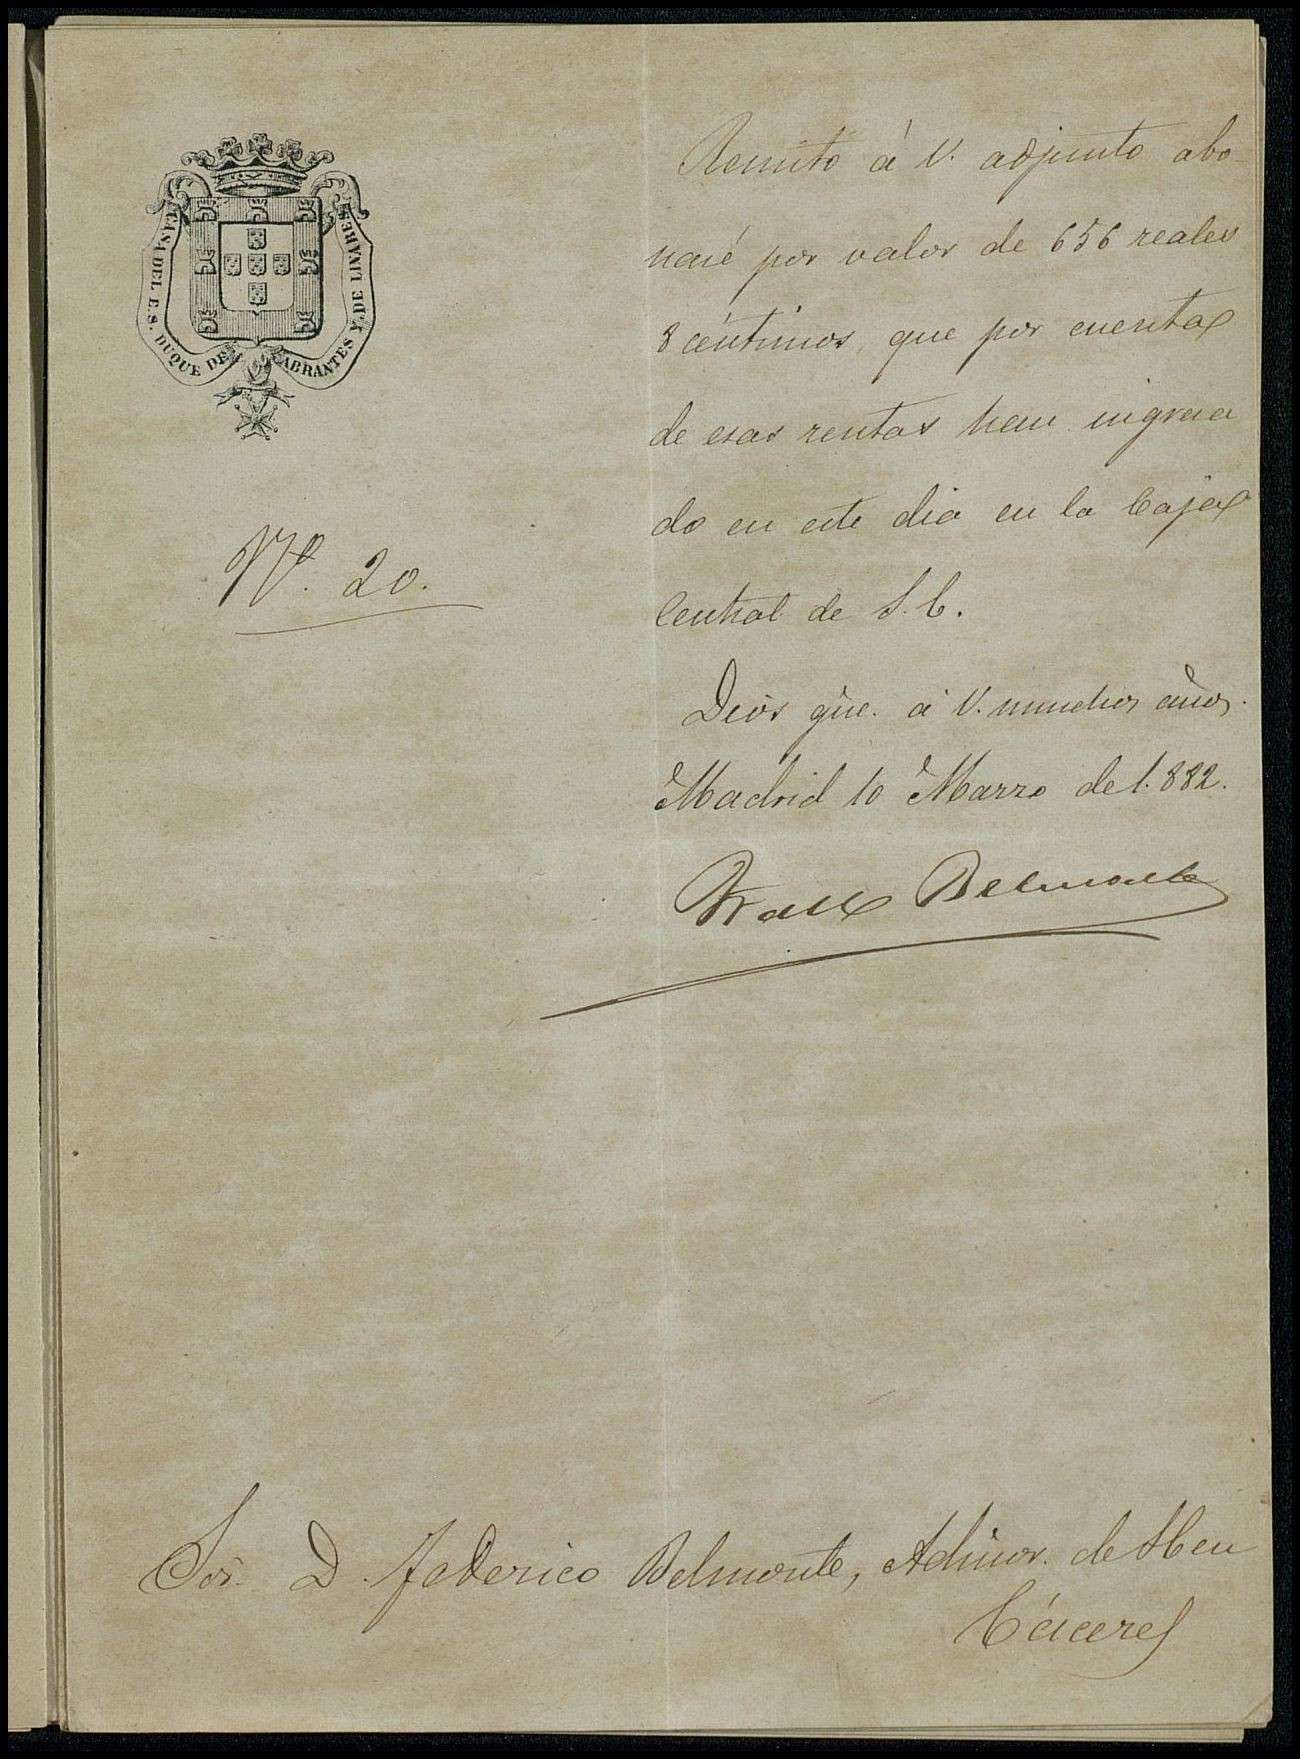 CASA DEL E.S. DUQUE DE ABRANTES Y DE LINARES
Nº. 20.
Remito á V. adjunto abo-
naré por valor de 656 reales
8 céntimos, que por cuenta
de esas rentas han ingresa
do en este dia en la Caja
Central de S. E.
Dios gue. á V. muchos años.
Madrid 10 Marzo de 1.882.
Belmonte
Sor. D. Federico Belmonte, Admor. de SE en
Cáceres